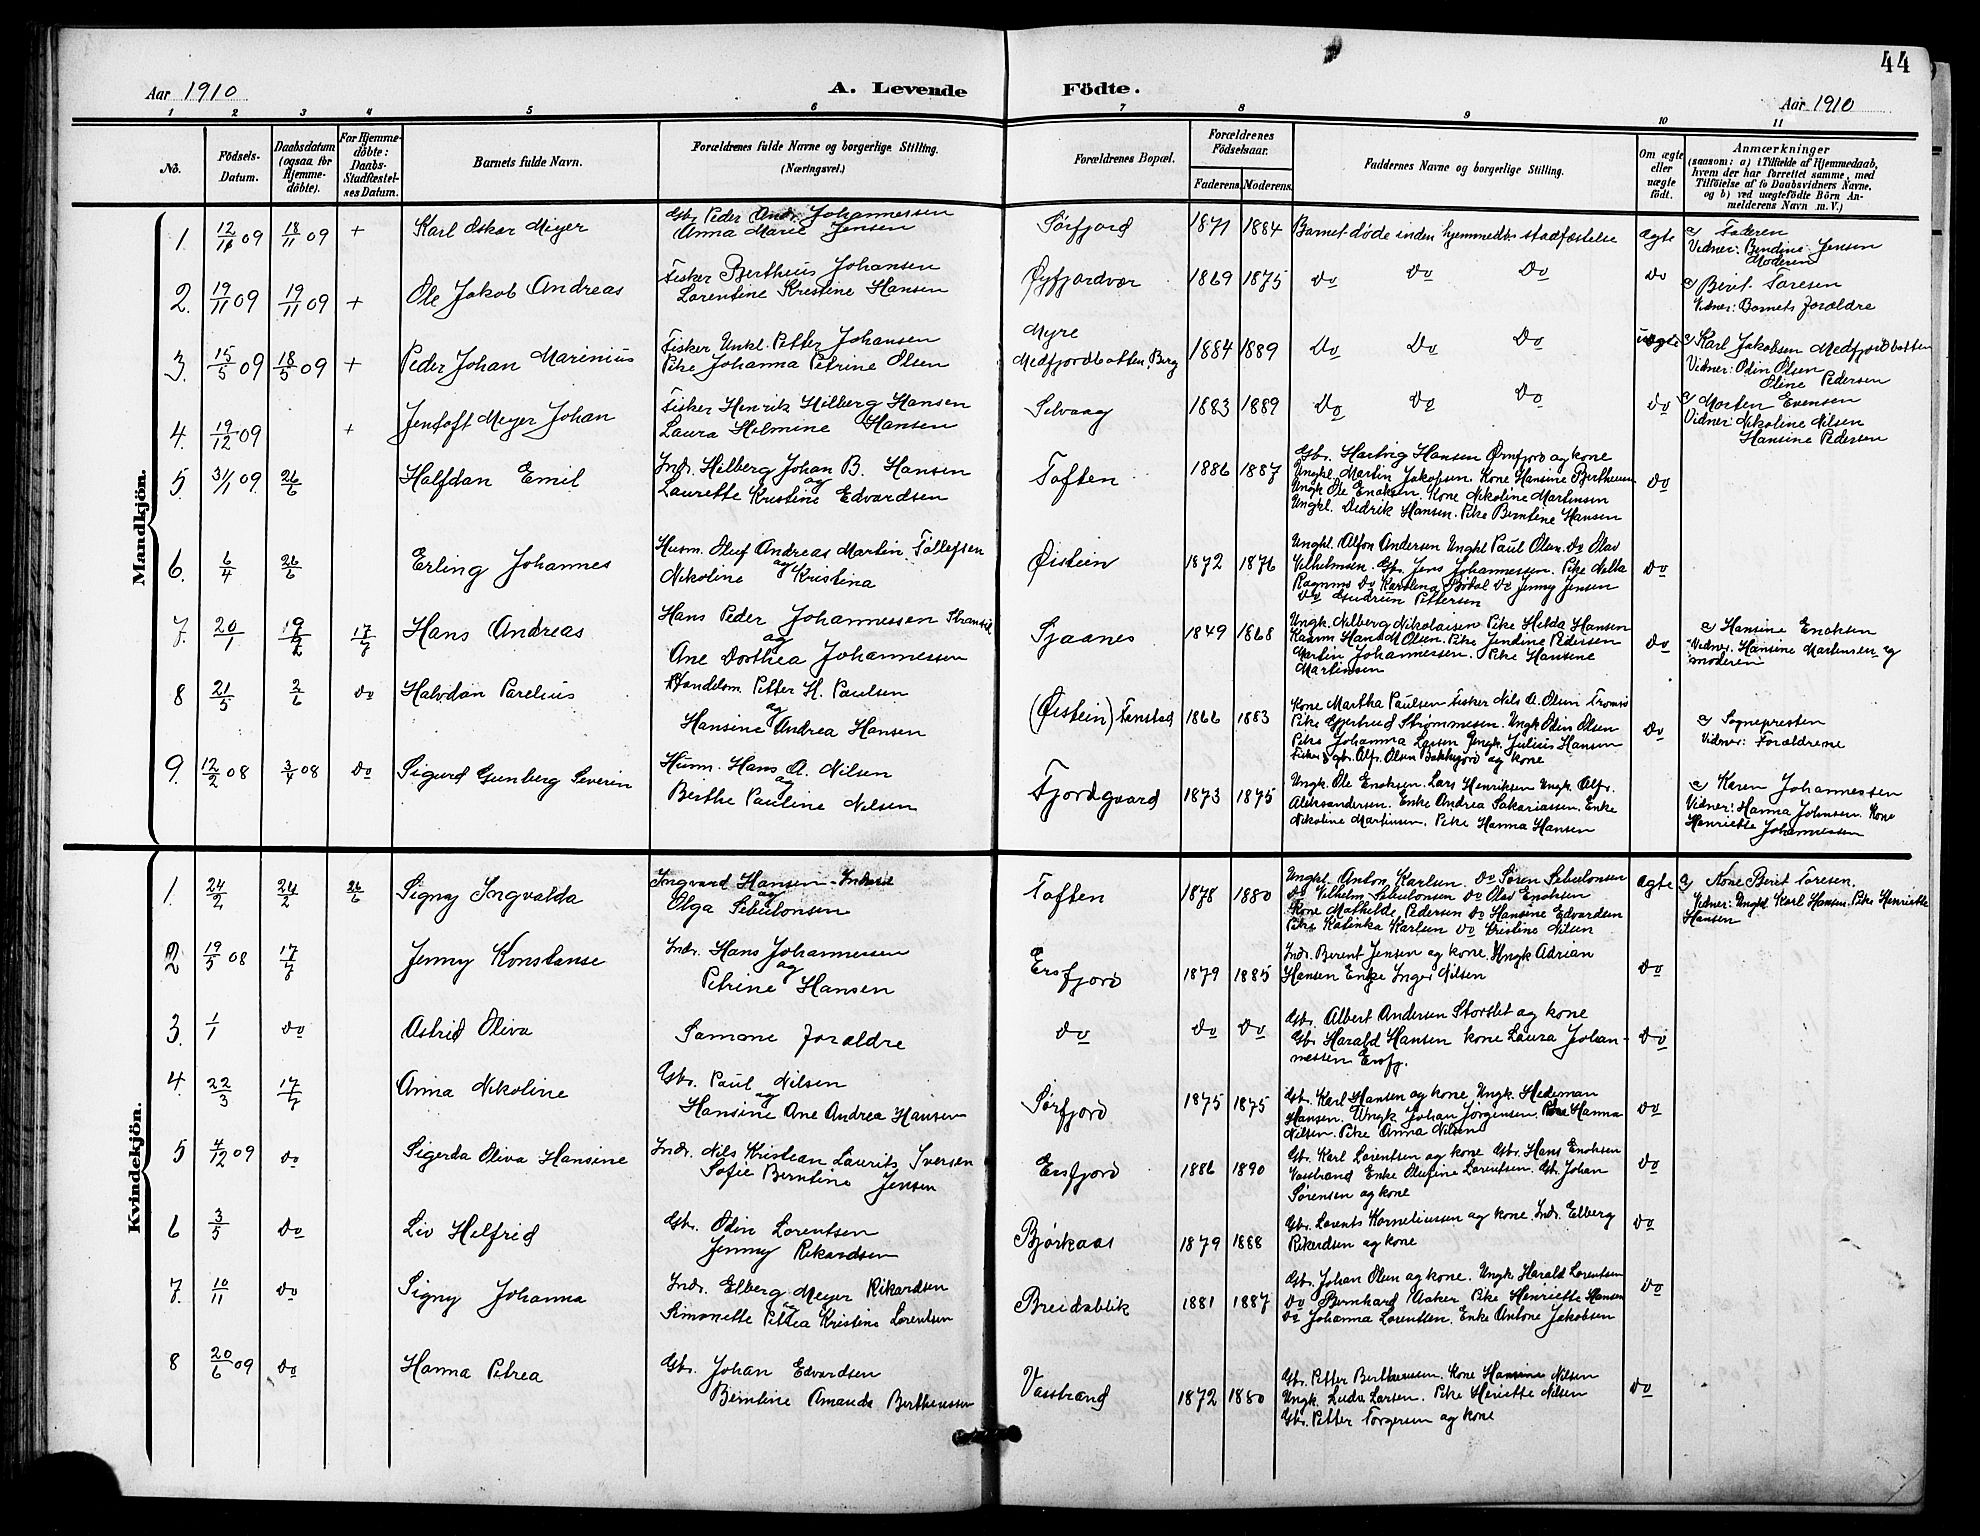 44
Aar 1910 A. Levende Födte. Aar 1910
1 2 3 4 5 6 7 8 9 10 11
No. Födsels-Datum. Daabsdatum (ogsaa for Hjemmedöbte). For Hjemmedöbte: Daabs-Stadfæstelses Datum. Barnets fulde Navn. Forældrenes fulde Navne og borgerlige Stilling. (Næringsvei.) Forældrenes Bopæl. Forældrenes Födselsaar. Faderens. Moderens. Faddernes Navne og borgerlige Stilling. Om ægte eller uægte födt. Anmærkninger (saasom: a) i Tilfælde af Hjemmedaab, hvem der har forrettet samme, med Tilföielse af to Daabsvidners Navne, og b) ved uægtefödte Börn Anmelderens Navn m. V.)
Mandkjön.
1. 12/11 09 18/11 09 + Karl Oskar Meyer Gbr. Peder Andr. Johannessen
Anna Marie Jensen Sørfjord 1871 1884 Barnet døde inden hjemmedb. stadfæstelse ægte a) Faderen
Vidner: Bendine Jensen
Moderen
2. 19/11 09 19/11 09 + Ole Jakob Andreas Fisker Bertheus Johansen
Lorentine Kristine Hansen Øyfjordvær 1869 1875 do do do do a) Berit Toresen
Vidner: Barnets forældre
3. 15/5 09 18/5 09 + Peder Johan Marinius Fisker Unkl. Petter Johansen
Pike Johanna Petrine Olsen Myre
Medfjordbotten, Berg 1884 1889 do do do uægte a) Karl Jakobsen Medfjordbotten
Vidner: Odin Olsen
Oline Pedersen
4. 19/12 09 + Jentoft Meyer Johan Fisker Henrik Hilberg Hansen
Laura Helmine Hansen Selvaag 1883 1889 do do do do a) Morten Evensen
Vidner: Nikoline Nilsen
Hansine Pedersen
5. 31/1 09 26/6 Halfdan Emil Indr. Hilberg Johan B. Hansen
og
Laurette Kristine Edvardsen Toften 1886 1887 Gbr. Hartvig Hansen Ørnfjord og kone
Unghl. Martin Jakobsen. Kone Hansine Bertheusen
Ungk Ole Enoksen. Kone Nikoline Martinsen
Unghl. Didrik Hansen. Pike Berntine Hansen do
6. 6/4 26/6 Erling Johannes Husm. Oluf Andreas Martin Tollefsen
og
Nikoline Kristina Øistein 1872 1876 Unghl. Alfon Andersen Unghl Paul Olsen. do Olav
Vilhelmsen. Gbr. Jens Johannessen. Pike Nelta
Ragnms do Karolina Bødal do Jenny Jensen
do Gudrun Pettersen do
7. 20/1 19/2 17/7 Hans Andreas Hans Peder Johannessen Stransk
og
Ane Dorthea Johannessen Sjaanes 1849 1868 Ungk. Nilberg Nikolaisen Pike Helda Hansen
Kaarm Hans M Olsen. Pike Jendine Pedersen
Martin Johannessen. Pike Hansine
Martinsen do a) Hansine Enoksen
Vidner. Hansine Martinsen og
moderen
8 21/5 2/6 do Halvdan Parelius Handelsm. Petter K. Paulsen
og
Hansine Andrea Hansen (Øistein) Tenstad 1866 1883 Kone Martha Paulsen Fisker Nils A. Olsen Tromsø
Pike Gjertrud Strømmesen. Ungk Odin Olsen
Pike Johanna Larsen Ungk. Julius Hansen
Fisker & gbr. Alfr. Olsen Bakkejord og kone do a) Sognepresten
Vidner: Forældrene
9. 12/2 08 3/4 08 do Sigurd Gunberg Severin Husm. Hans A. Nilsen
og
Berthe Pauline Nilsen Fjordgaard 1873 1875 Ungk. Ole Enoksen. Lars Henriksen Ungk. Alfr.
Aleksandersen. Enke Andrea Sakariassen. Enke
Nikoline Martinsen. Pike Hanna Hansen a) Karen Johannessen
Vidner: Hanna Johnsen. Kone
Henriette Johannessen
Kvindekjön.
1. 24/2 24/2 26/6 Signy Ingvalda Ingvard Hansen - Inderst
og
Olga Sebulonsen Toften 1878 1880 Unghl. Anton Karlsen. do Søren Sebulonsen
do Vilhelm Sebulonsen do Olav Enoksen
Kone Mathilde Pedersen do Hansine Edvardsen
Pike Katinka Karlsen do Kristine Nilsen ægte a) Kone Berit Toresen.
Vidner: Unghl Karl Hansen. Pike Henriette
Hansen
2 19/5 08 17/7 Jenny Konstanse Indr. Hans Johannessen
og
Petrine Hansen Ersfjord 1879 1885 Indr. Berent Jensen og kone. Ungk Adrian
Hansen Enke Inger Nilsen do
3. 1/1 do Astrid Oliva Samme foraldre do do do Gbr. Albert Andersen Storslet og kone
Gbr Harald Hansen kone Laura Johan-
nessen Ersfj. do
4 22/3 17/7 Anna Nikoline Gbr. Paul Nilsen
og
Hansine Ane Andrea Hansen Sørfjord 1875 1875 Gbr. Karl Hansen og kone Ungk. Hedeman
Hansen. Ungk. Johan Jörgensen. Pike Hanna
Nilsen. Pike Anna Nilsen do
5 4/12 09 do Sigerda Oliva Hansine Indr. Nils Kristian Laurits Iversen
Sofie Berntine Jensen Ersfjord 1886 1890 Gbr. Karl Lorentsen og kone Gbr. Hans Enoksen
Vasstrand Enke Olufine Lorentsen. Gbr. Johan
Sørensen og kone do
6 3/5 do Liv Helfrid Gbr. Odin Lorentsen
Jenny Rikardsen Bjørkaas 1879 1888 Gbr. Lorents Korneliussen og kone. Indr. Elberg
Rikardsen og kone do
7. 10/11 do Signy Johanna Indr. Elberg Meyer Rikardsen
og
Simonette Pettea Kristine Lorentsen Breidablik 1881 1887 Gbr. Johan Olsen og kone. Ungk. Harald Lorentsen
do Bernhard Aaker Pike Henriette Hansen
do Johanna Lorentsen. Enke Antone Jakobsen do
8 20/6 09 do Hanna Petrea Gbr. Johan Edvardsen
Berntine Amanda Bertheussen Vasstrand 1872 1880 Gbr. Petter Bertheussen. Kone Hansine Nilsen
Ungk. Ludv. Larsen. Pike Henriette Nilsen
Gbr. Petter Torgersen og kone do